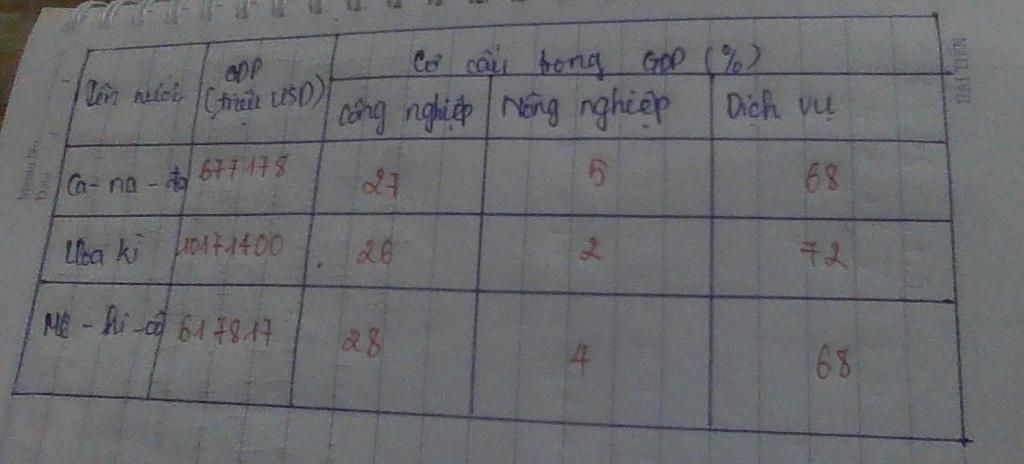 Tên nước GDP (triệu USD) Cơ cấu trong GDP (%)
Công nghiệp Nông nghiệp Dịch vụ
Ca-na-đa 677178 27 5 68
Hoa kì 10171400 26 2 72
Mê-hi-cô 617817 28 4 68
HẢI TIẾN